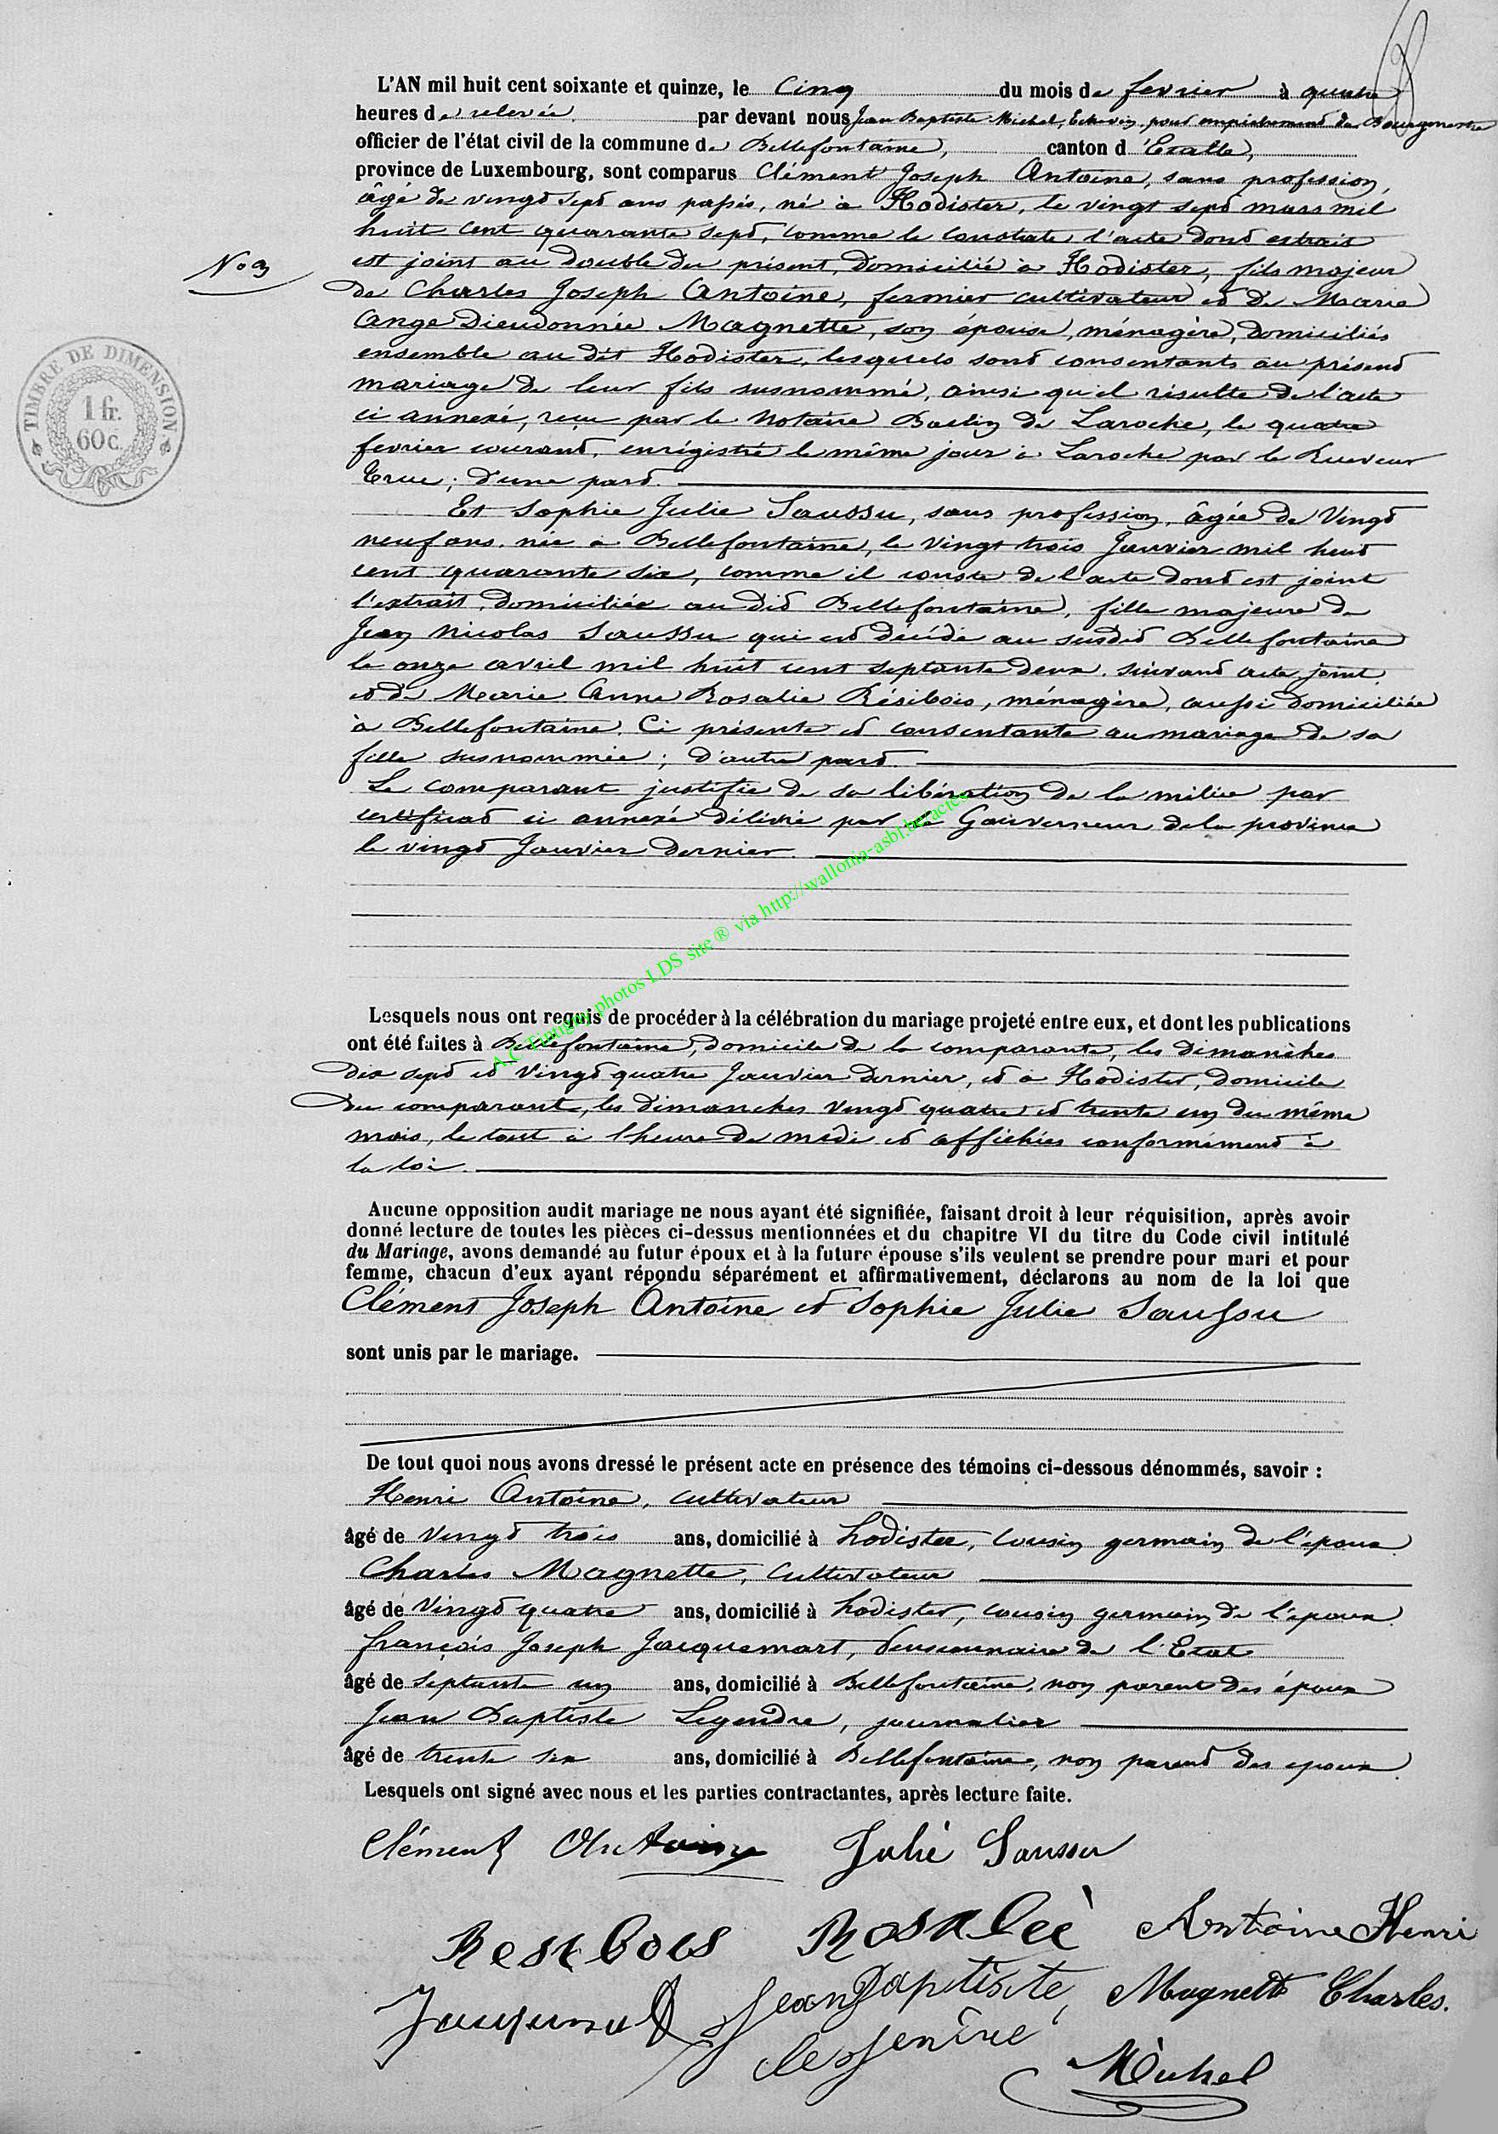 L'AN mil huit cent soixante et quinze, le Cinq du mois de fevrier à quatre
heures de relevée par devant nous Jean Baptiste Michel, Echevin, pour empêchement du Bourgmestre
officier de l'état civil de la commune de Bellefontaine, canton d'Etalle,
province de Luxembourg, sont comparus Clément Joseph Antoine, sans profession,
âgé de vingt sept ans passés, né à Hodister, le vingt sept mars mil
huit cent quarante sept, comme le constate l'acte dont extrait
No 3
est joint au double du présent, domicilié à Hodister, fils majeur
de Charles Joseph Antoine, fermier cultivateur et de Marie
Ange Dieudonnée Magnette, son épouse, ménagère, domiciliés
ensemble au dit Hodister, lesquels sont consentants au présent
mariage de leur fils susnommé, ainsi qu'il résulte de l'acte
TIMBRE DE DIMENSION
1 fr.
60c.
ci annexé, reçu par le Notaire de Laroche, le quatre
fevrier courant, enrégistré le même jour à Laroche par le Receveur
; d'une part.
Et Sophie Julie Saussu, sans profession, âgée de Vingt
neuf ans, née à Bellefontaine, le vingt trois Janvier mil huit
cent quarante six, comme il conste de l'acte dont est joint
l'extrait, domiciliée au dit Bellefontaine, fille majeure de
Jean Nicolas Saussu qui est décédé au susdit Bellefontaine
le onze avril mil huit cent septante deux, suivant acte joint,
et de Marie Anne Rosalie Résibois, ménagère, aussi domiciliée
à Bellefontaine. Ci présente et consentante au mariage de sa
fille susnommée; d'autre part.
Le comparant justifie de sa libération de la milice par
certificat ci annexé délivré par le Gouverneur de la province
le vingt Janvier dernier.
A.C Tintigny photos LDS site ® via http://wallonia-asbl.be/actes
Lesquels nous ont requis de procéder à la célébration du mariage projeté entre eux, et dont les publications
ont été faites à Bellefontaine, domicile de la comparante, les dimanches
dix sept et Vingt quatre Janvier dernier, et à Hodister, domicile
du comparant, les dimanches vingt quatre et trente un du même
mois, le tout à l'heure de midi et affichées conformément à
la loi.
Aucune opposition audit mariage ne nous ayant été signifiée, faisant droit à leur réquisition, après avoir
donné lecture de toutes les pièces ci-dessus mentionnées et du chapitre VI du titre du Code civil intitulé
du Mariage, avons demandé au futur époux et à la future épouse s'ils veulent se prendre pour mari et pour
femme, chacun d'eux ayant répondu séparément et affirmativement, déclarons au nom de la loi que
Clément Joseph Antoine et Sophie Julie Saussu
sont unis par le mariage.
De tout quoi nous avons dressé le présent acte en présence des témoins ci-dessous dénommés, savoir :
Henri Antoine, cultivateur
âgé de vingt trois ans, domicilié à hodister, cousin germain de l'époux.
Charles Magnette, cultivateur
âgé de Vingt quatre ans, domicilié à hodister, cousin germain de l'époux.
françois Joseph Jacquemart, Pensionnaire de l'Etat
âgé de septante un ans, domicilié à Bellefontaine, non parent des époux
Jean Baptiste Legendre, journalier
âgé de trente six ans, domicilié à Bellefontaine, non parent des époux.
Lesquels ont signé avec nous et les parties contractantes, après lecture faite.
Clément Antoine Julie Saussu
Resibois Rosalie Antoine Henri
Jacquemart Jean Baptiste Magnette Charles.
Michel